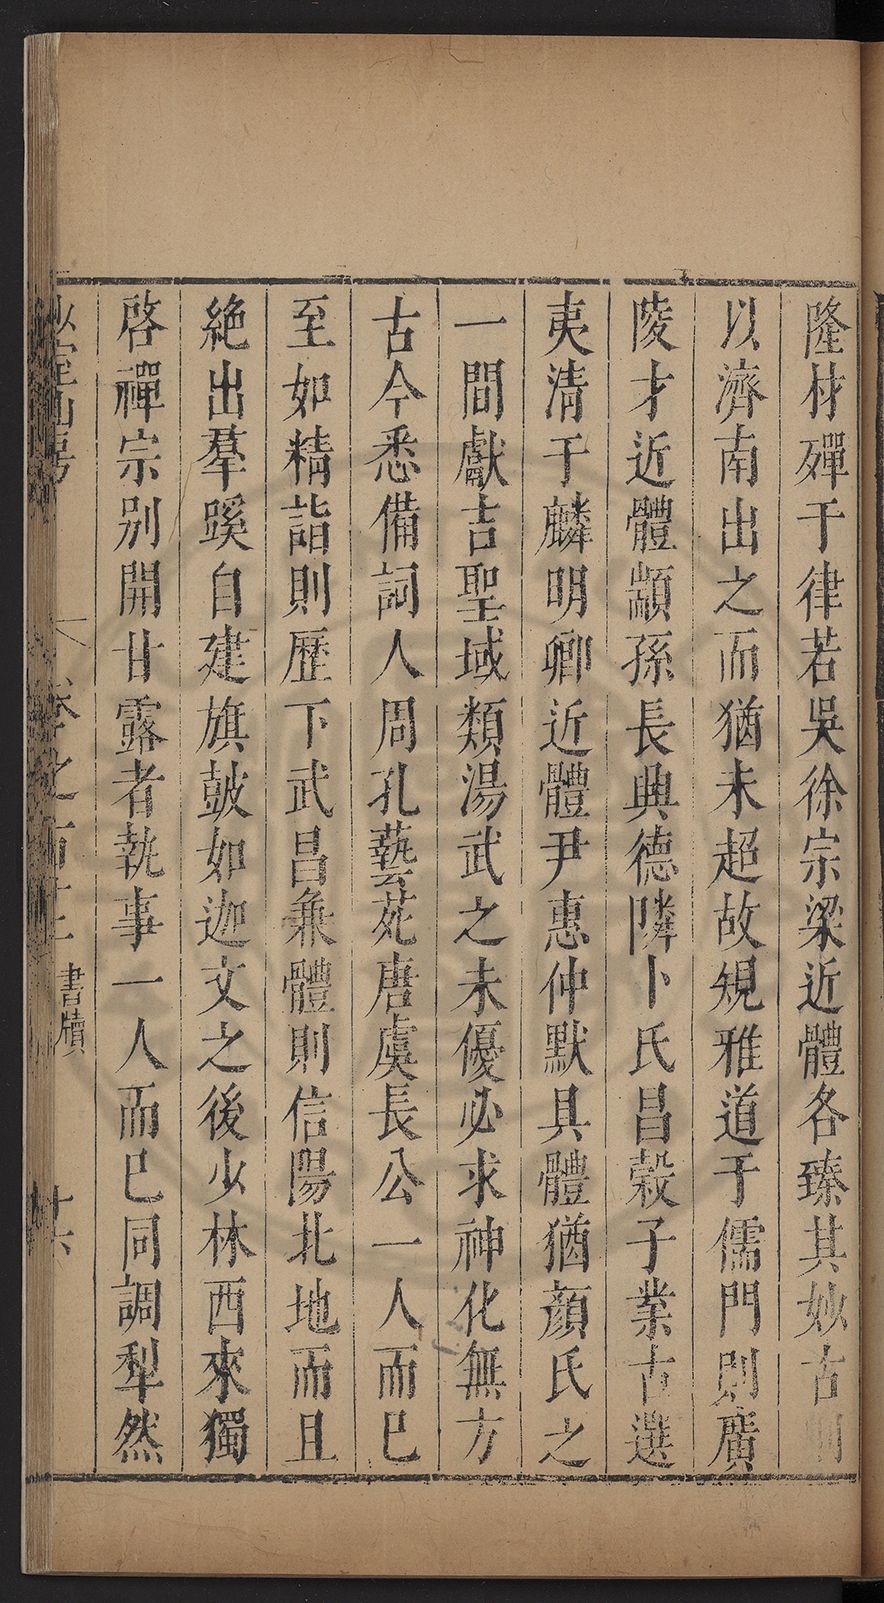 隆材殫于律若吳徐宗梁近體各臻其妙古
以濟南出之而猶未超故規雅道于儒門則廣
陵才近體顓孫長興德隣卜氏昌穀子業古選
夷清于麟明卿近體尹惠仲默具體猶顏氏之
一間獻吉聖域類湯武之未優必求神化無方
古今悉備詞人周孔藝苑唐虞長公一人而已
至如精詣則歷下武昌兼體則信陽北地而且
絶出羣蹊自建旗鼓如迦文之後少林西來獨
啓禪宗別開甘露者執事一人而已同調犁然
山房 卷之百十 書牘 廿六